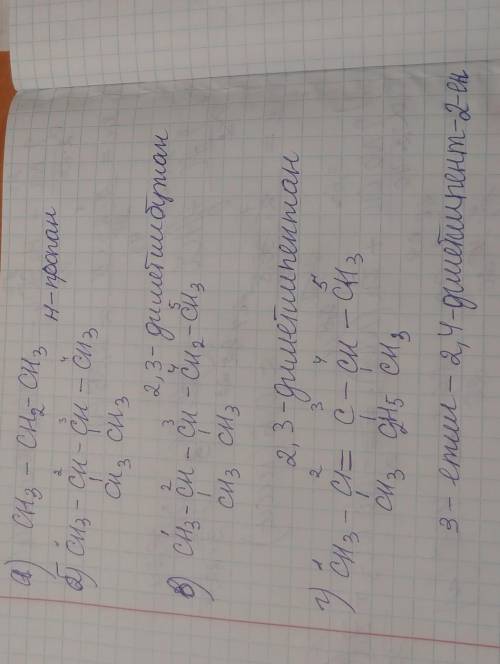 а) CH3 – CH2 – CH3 н-пропан
1 2 3 4
б) CH3 – CH – CH – CH3
CH3 CH3
2,3-диметилбутан
1 2 3 4 5
в) CH3 – CH – CH – CH2 – CH3
CH3 CH3
2,3-диметилпентан
1 2 3 4 5
г) CH3 – C = C – CH – CH3
CH3 CH3
3-етил-2,4-диметилпент-2-ен